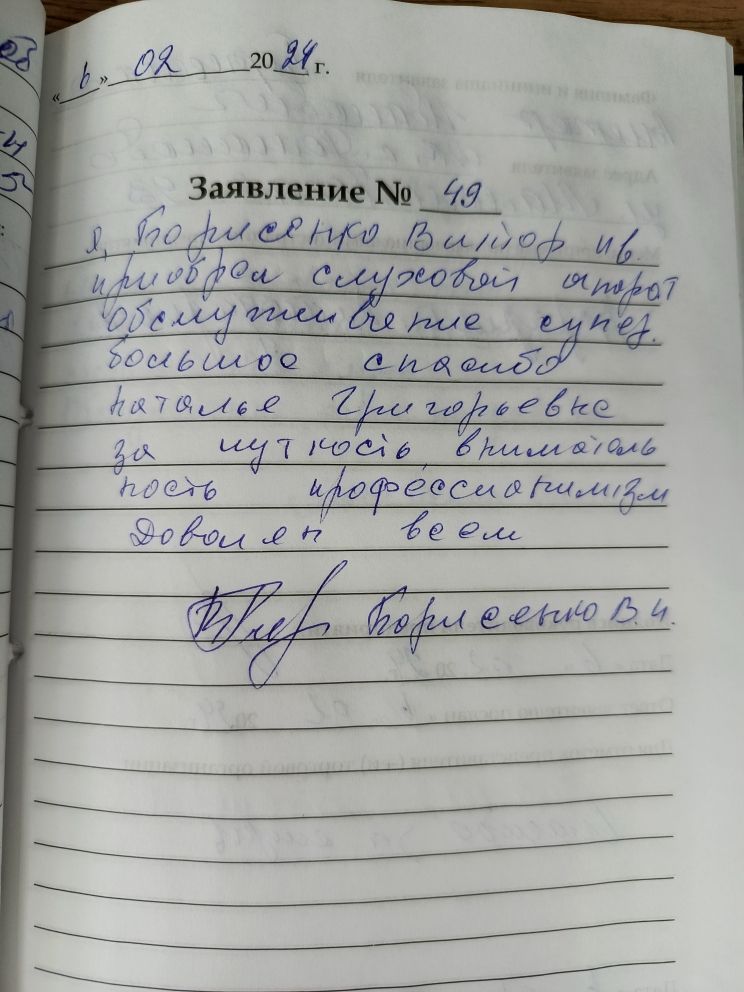 « 6 » 02 2024 г.
Заявление № 49
я, Борисенко Виктор ив.
приобрел слуховой апорат
обслуживчение супер.
большое спасибо
Наталье Григорьевне
за чуткость, вниматель
ность профессианимізм
Доволен всем
Борисенко В. и.